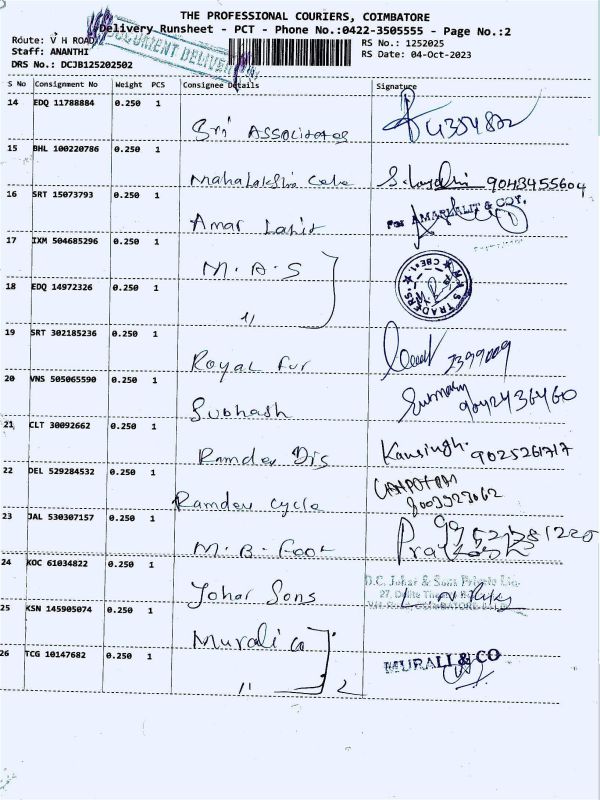 THE PROFESSIONAL COURIERS, COIMBATORE
Delivery Runsheet - PCT - Phone No.:0422-3505555 - Page No.:2
Route: V H ROAD
RS No.: 1252025
Staff: ANANTHI
RS Date: 04-Oct-2023
DRS No.: DCJB125202502
DOCUMENT DELIVERY
S No Consignment No Weight PCS Consignee Details Signature
14 EDQ 11788884 0.250 1
Sri Associates
15 BHL 100220786 0.250 1
Mahalakshmi Cake 9043455604
16 SRT 15073793 0.250 1
Amar Lalit For AMARLALIT & COY.
17 IXM 504685296 0.250 1
M.A.S M.A.S TRADERS CBE-1
18 EDQ 14972326 0.250 1
"
19 SRT 302185236 0.250 1
Royal Fur
20 VNS 505065590 0.250 1
Subhash 9042436460
21 CLT 30092662 0.250 1
Ramdev Dis Kansingh. 9025261717
22 DEL 529284532 0.250 1
Ramdev Cycle
23 JAL 530307157 0.250 1
M.B. Foot Prakash
24 KOC 61034822 0.250 1
Johar Sons D.C. Johar & Sons Private Ltd.
25 KSN 145905074 0.250 1
Murali Co
26 TCG 10147682 0.250 1
" 2 MURALI & CO